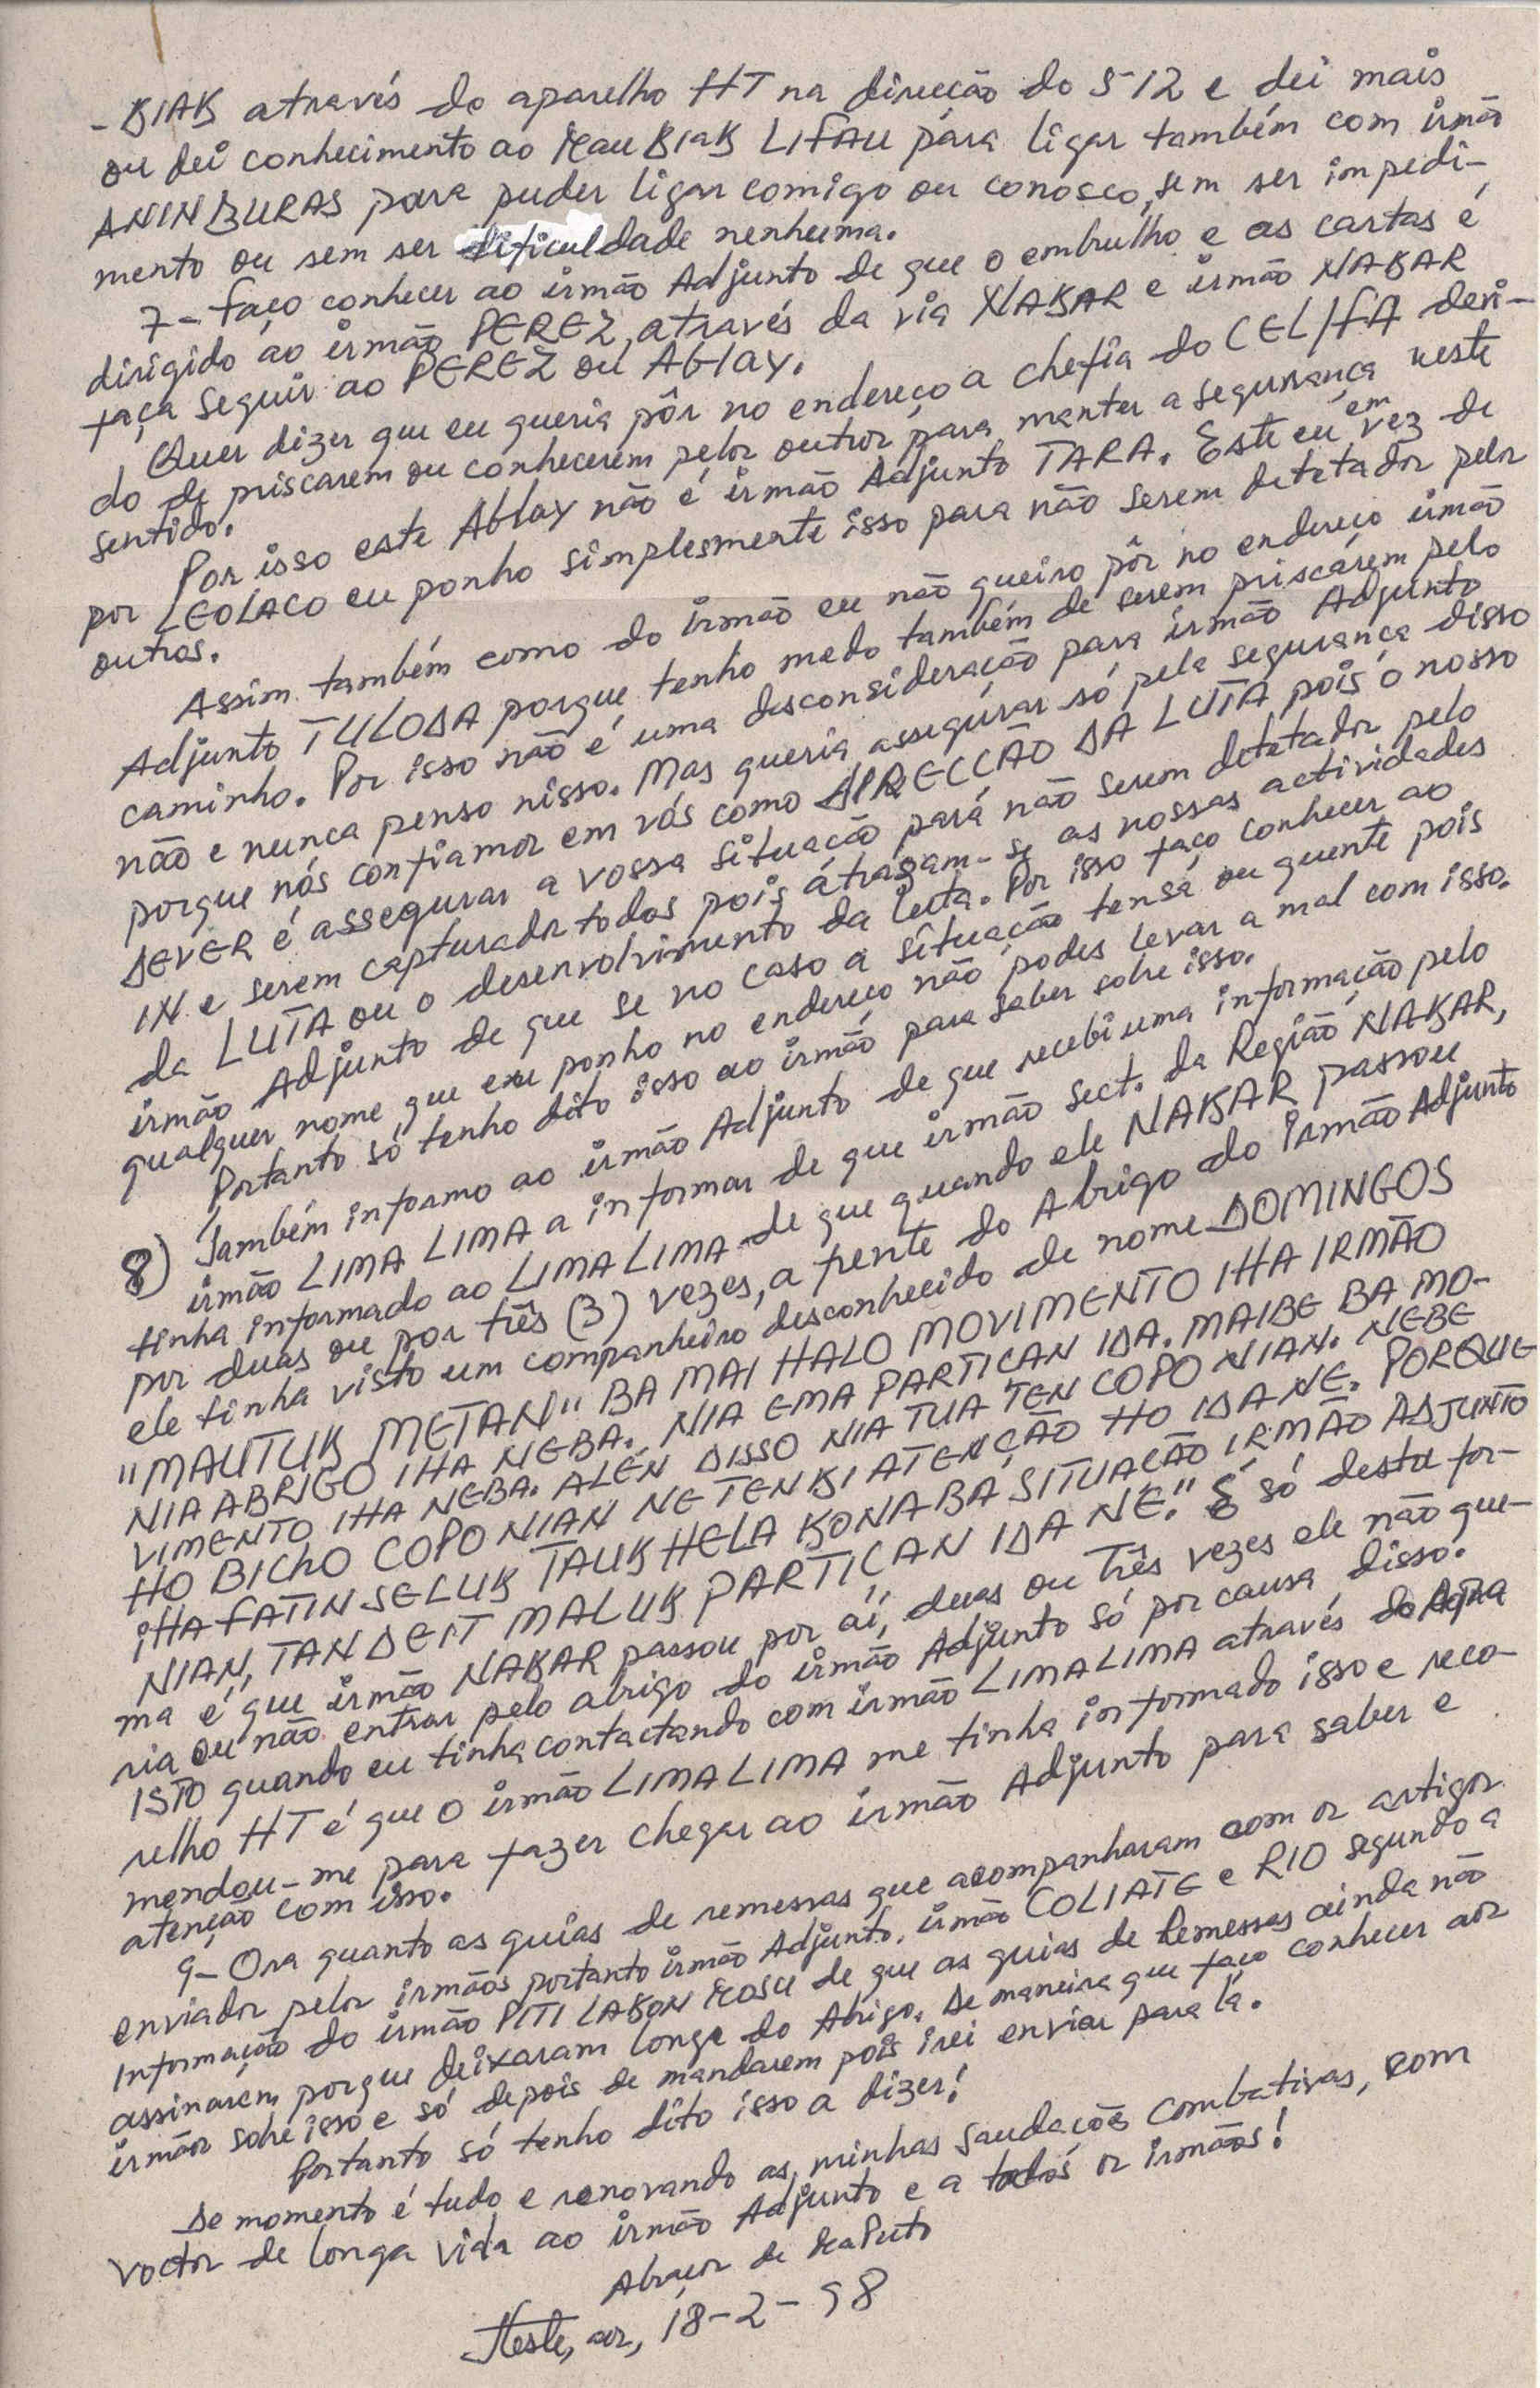 - BIAK através do aparelho HT na direcção do S-12 e dei mais
ou dei conhecimento ao MauBIAK LIFAU para ligar também com irmão
ANINBURAS para puder ligar comigo ou conosco, sem ser impedi-
mento ou sem ser dificuldade nenhuma.
7 - Faço conhecer ao irmão Adjunto de que o embrulho e as cartas é
dirigido ao irmão PEREZ, através da via NAKAR e irmão NAKAR
faça seguir ao PEREZ ou Ablay.
Quer dizer que eu queria pôr no endereço a chefia do CEL/FA devi-
do de priscarem ou conhecerem pelos outros para manter a segurança neste
sentido.
Por isso este Ablay não é irmão Adjunto TARA. Este eu em vez de
por LEOLACO eu ponho simplesmente isso para não serem detetados pelos
outros.
Assim também como do irmão eu não queiro pôr no endereço irmão
Adjunto TULODA porque tenho medo também de serem priscárem pelo
caminho. Por isso não é uma desconsideração para irmão Adjunto
não e nunca penso nisso. Mas queria assegurar só pela segurança disso
porque nós confiamos em vós como DIRECÇÃO DA LUTA pois o nosso
DEVER é assegurar a vossa situação para não serem detetados pelo
IN e serem capturados todos pois átrasam-se as nossas actividades
da LUTA ou o desenvolvimento da Luta. Por isso faço conhecer ao
irmão Adjunto de que se no caso a situação tensa ou quente pois
qualquer nome que eu ponho no endereço não podes levar a mal com isso.
Portanto só tenho dito isso ao irmão para saber sobre isso.
8) Também informo ao irmão Adjunto de que recebi uma informação pelo
irmão LIMA LIMA a informar de que irmão sect. da Região NAKAR,
tinha informado ao LIMA LIMA de que quando ele NAKAR passou
por duas ou por três (3) vezes, a frente do Abrigo do Irmão Adjunto
ele tinha visto um companheiro desconhecido de nome DOMINGOS
"MAUTUK METAN" BA MAI HALO MOVIMENTO IHA IRMÃO
NIA ABRIGO IHA NEBA. NIA EMA PARTICAN IDA. MAIBE BA MO-
VIMENTO IHA NEBA. ALÉN DISSO NIA TUA TEN COPO NIAN. NEBE
HO BICHO COPO NIAN NE TENKI ATENÇÃO HO IDA NE. PORQUE
IHA FATIN SELUK TAUK HELA KONABA SITUAÇÃO IRMÃO ADJUNTO
NIAN, TAN DEIT MALUK PARTICAN IDA NE." E só desta for-
ma é que irmão NAKAR passou por aí, duas ou Três vezes ele não que-
ria ou não entrar pelo abrigo do irmão Adjunto só por causa disso.
ISTO quando eu tinha contactando com irmão LIMA LIMA através do Apa
relho HT é que o irmão LIMA LIMA me tinha informado isso e reco-
mendou-me para fazer chegar ao irmão Adjunto para saber e
atenção com isso.
9 - Ora quanto as guias de remessas que acompanharam com os artigos
enviados pelos irmãos portanto irmão Adjunto, irmão COLIATE e RIO segundo a
Informação do irmão PITI LAKON MOSU de que as guias de Remessas ainda não
assinarem porque deixaram longe do Abrigo. De maneira que faço conhecer aos
irmãos sobre isso e só depois de mandarem pois irei enviar para lá.
Portanto só tenho dito isso a dizer!
De momento é tudo e renovando as minhas saudações combativas, com
voctos de longa vida ao irmão Adjunto e a todos os irmãos!
Abraços de
Neste, aos, 18-2-98